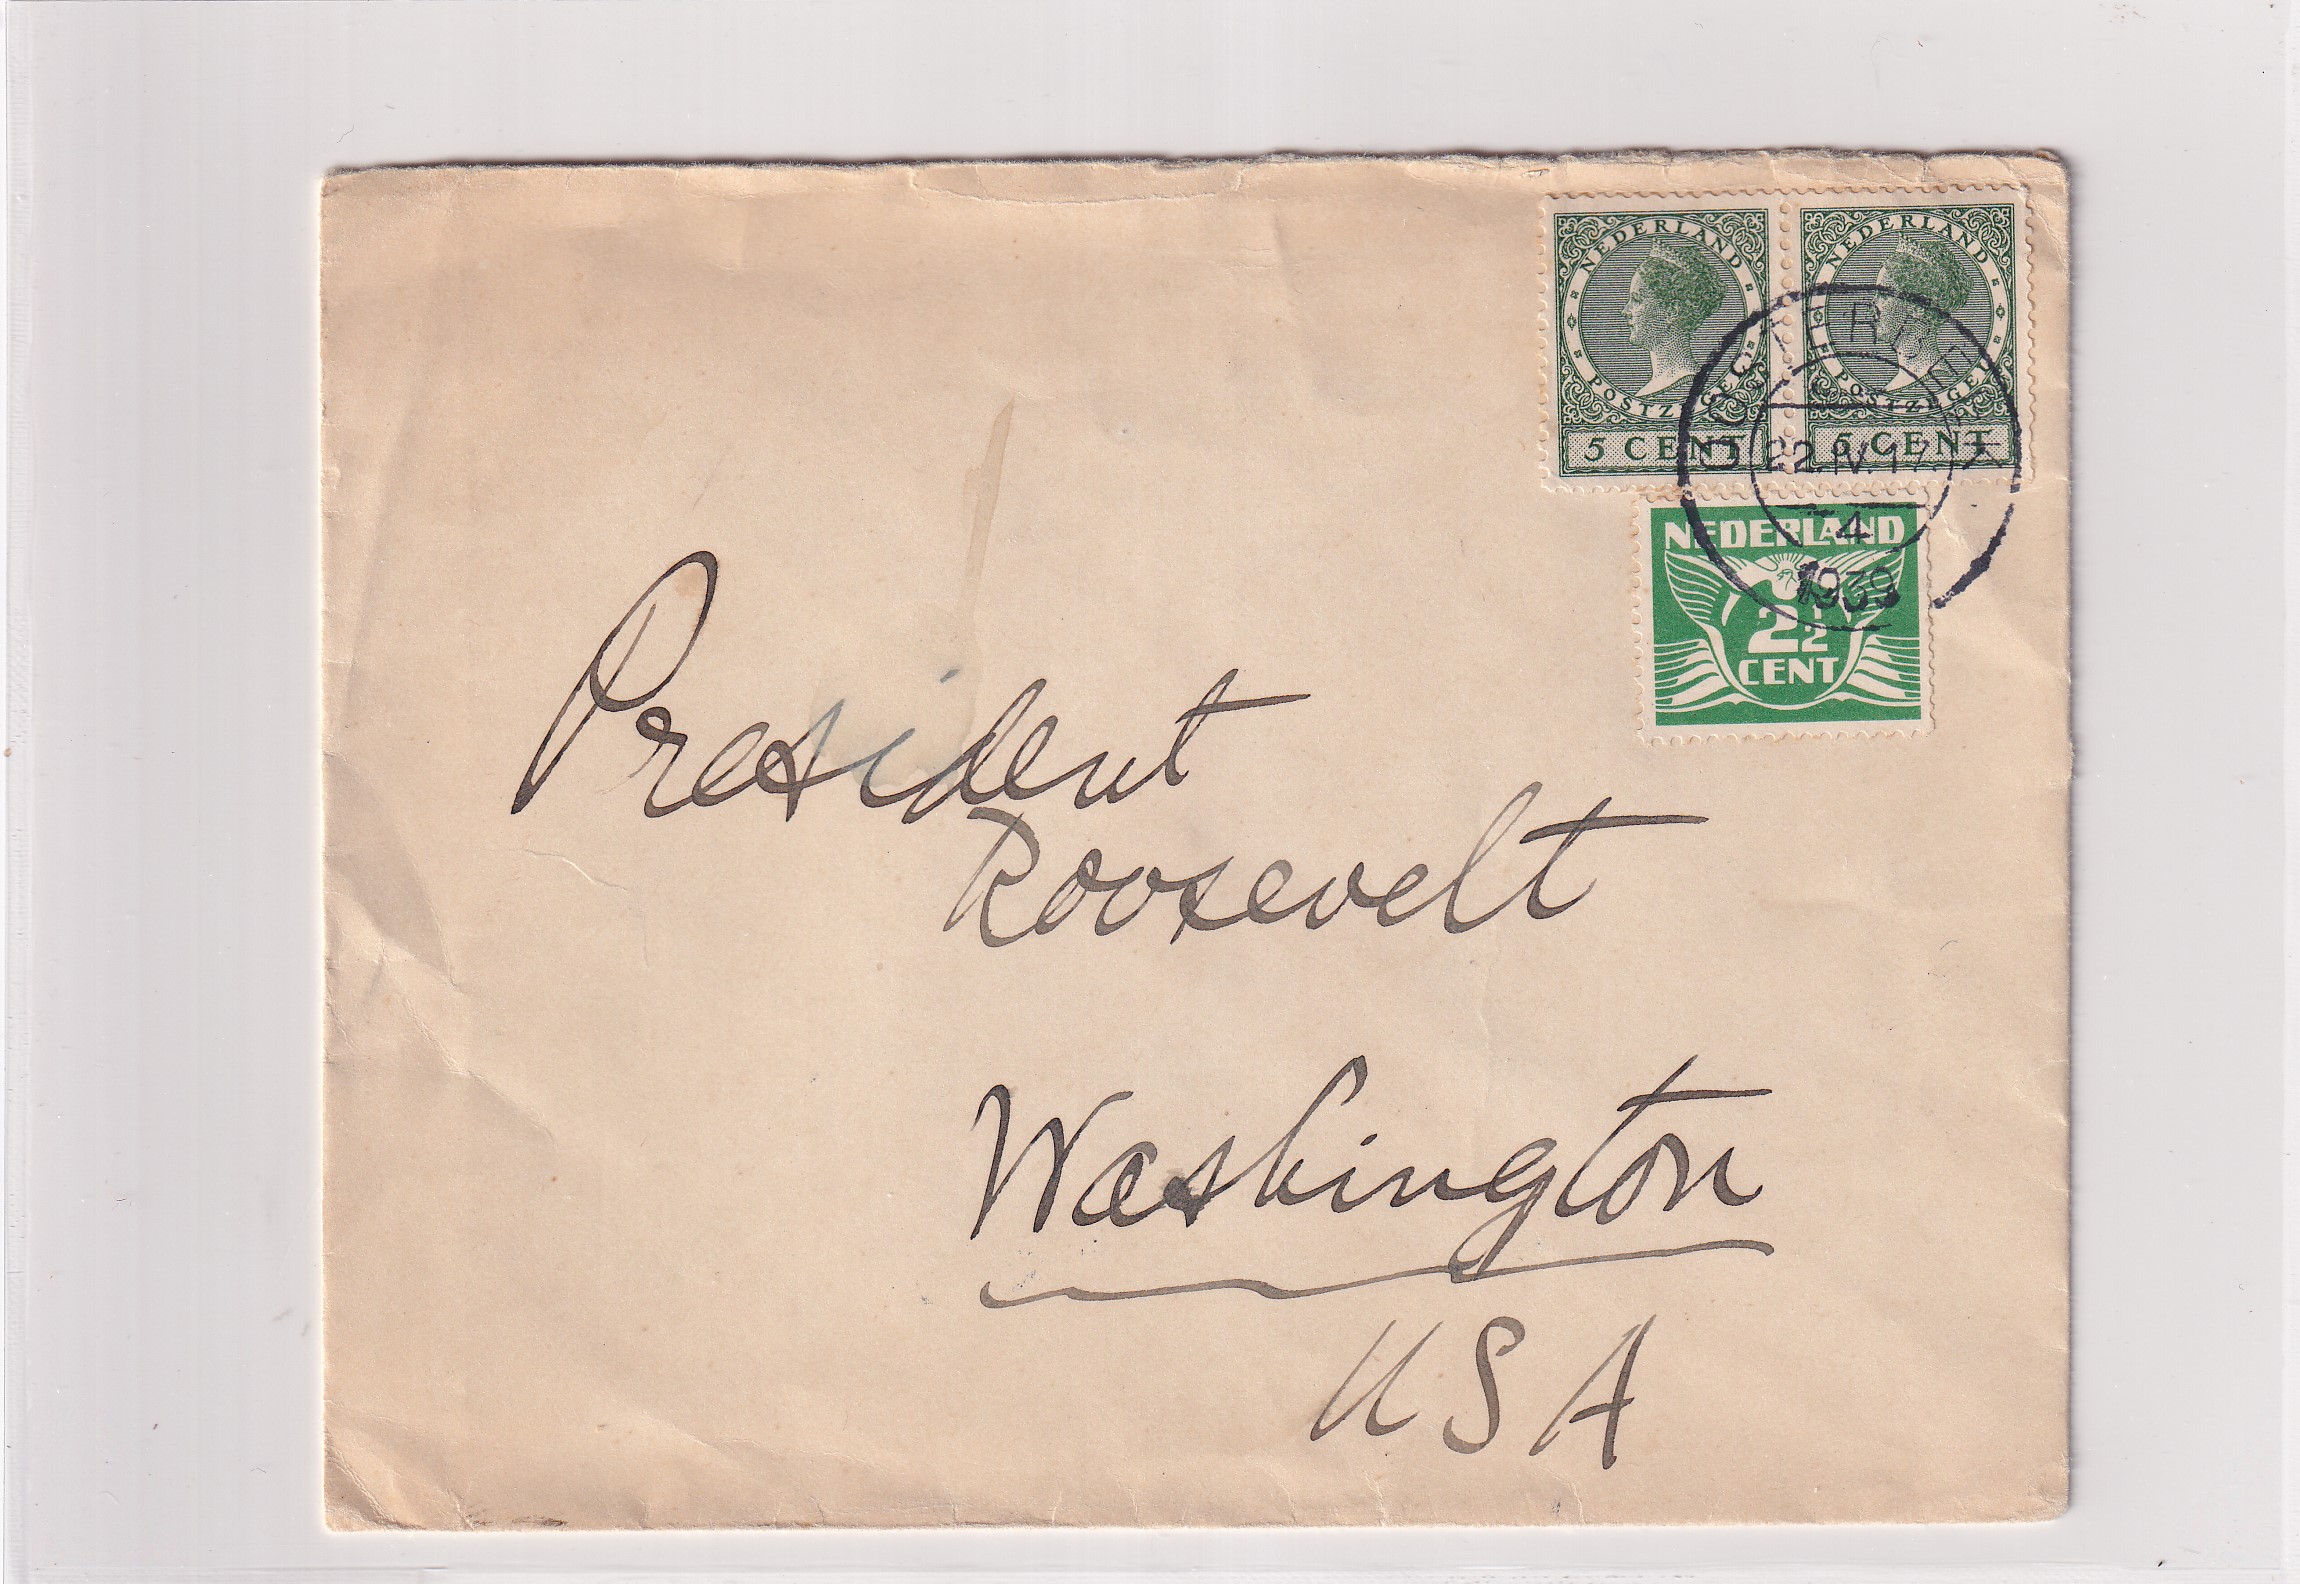 NEDERLAND
POSTZEGEL
5 CENT
NEDERLAND
POSTZEGEL
5 CENT
OOSTERBEEK
22.IV.17
4
1939
NEDERLAND
2½
CENT
President
Roosevelt
Washington
USA